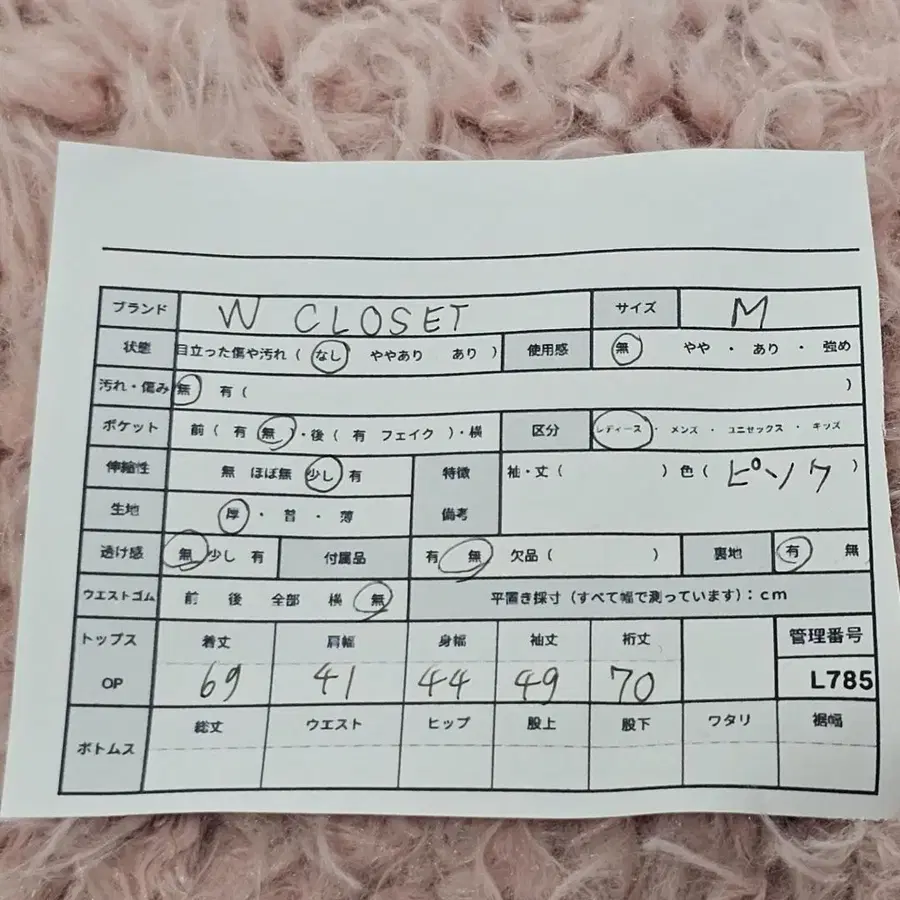 ブランド W CLOSET サイズ M
状態 目立った傷や汚れ ( なし ややあり あり ) 使用感 無 やや ・ あり ・ 強め
汚れ・傷み 無 有 ( )
ポケット 前 ( 有 無 ) ・後 ( 有 フェイク ) ・横 区分 レディース ・ メンズ ・ ユニセックス ・ キッズ
伸縮性 無 ほぼ無 少し 有 特徴 袖・丈 ( ) 色 ( ピンク )
生地 厚 ・ 普 ・ 薄 備考
透け感 無 少し 有 付属品 有 無 欠品 ( ) 裏地 有 無
ウエストゴム 前 後 全部 横 無 平置き採寸 (すべて幅で測っています) : cm
トップス 着丈 肩幅 身幅 袖丈 裄丈 管理番号
OP 69 41 44 49 70 L785
ボトムス 総丈 ウエスト ヒップ 股上 股下 ワタリ 裾幅